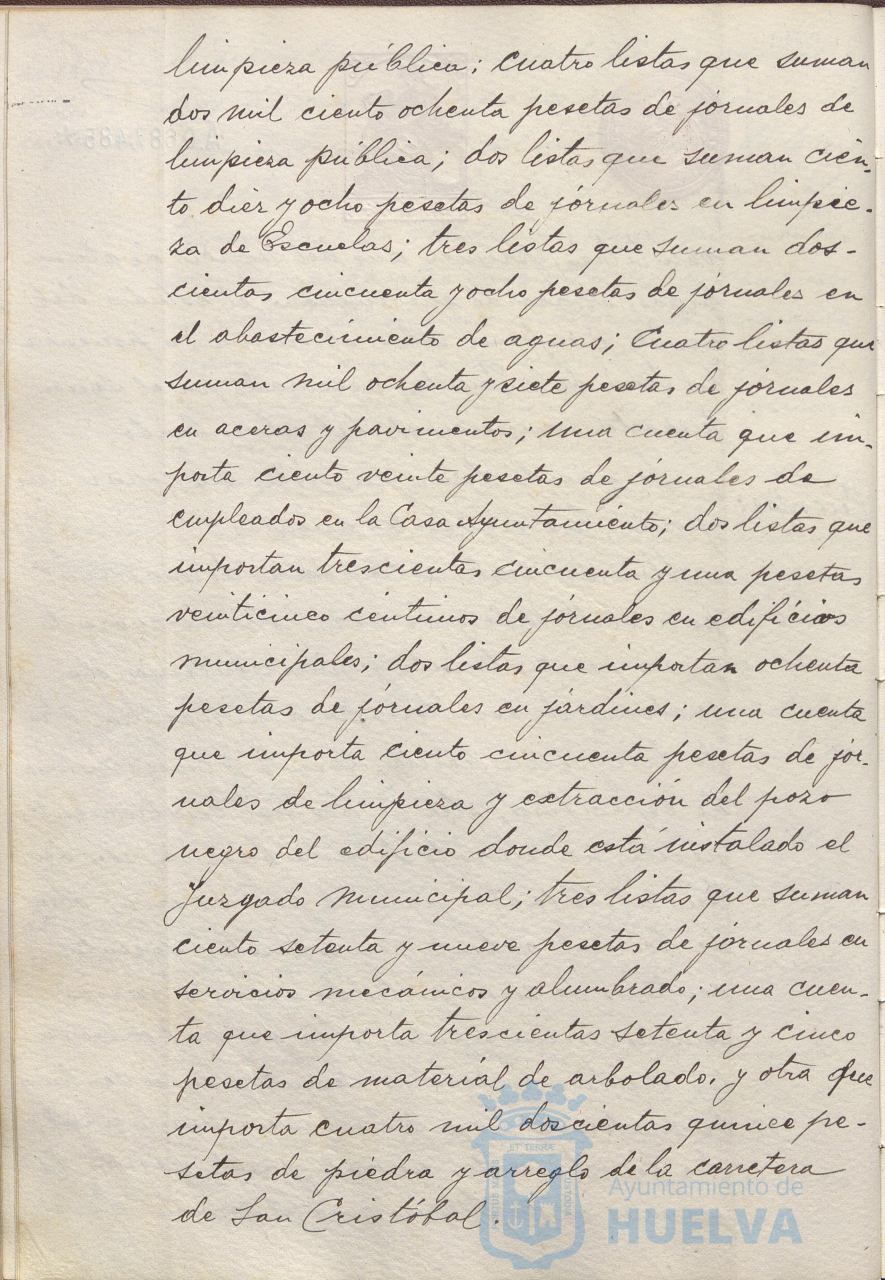 limpieza pública; cuatro listas que suman
dos mil ciento ochenta pesetas de jornales de
limpieza pública; dos listas que suman cien-
to diez y ocho pesetas de jornales en limpie-
za de Escuelas; tres listas que suman dos-
cientas cincuenta y ocho pesetas de jornales en
el abastecimiento de aguas; Cuatro listas que
suman mil ochenta y siete pesetas de jornales
en aceras y pavimentos; una cuenta que im-
porta ciento veinte pesetas de jornales de
empleados en la Casa Ayuntamiento; dos listas que
importan trescientas cincuenta y una pesetas
veinticinco céntimos de jornales en edificios
municipales; dos listas que importan ochenta
pesetas de jornales en jardines; una cuenta
que importa ciento cincuenta pesetas de jor-
nales de limpieza y extracción del pozo
negro del edificio donde está instalado el
Juzgado Municipal; tres listas que suman
ciento setenta y nueve pesetas de jornales en
servicios mecánicos y alumbrado; una cuen-
ta que importa trescientas setenta y cinco
pesetas de material de arbolado, y otra que
importa cuatro mil doscientas quince pe-
setas de piedra y arreglo de la carretera
de San Cristóbal.
Ayuntamiento de
HUELVA